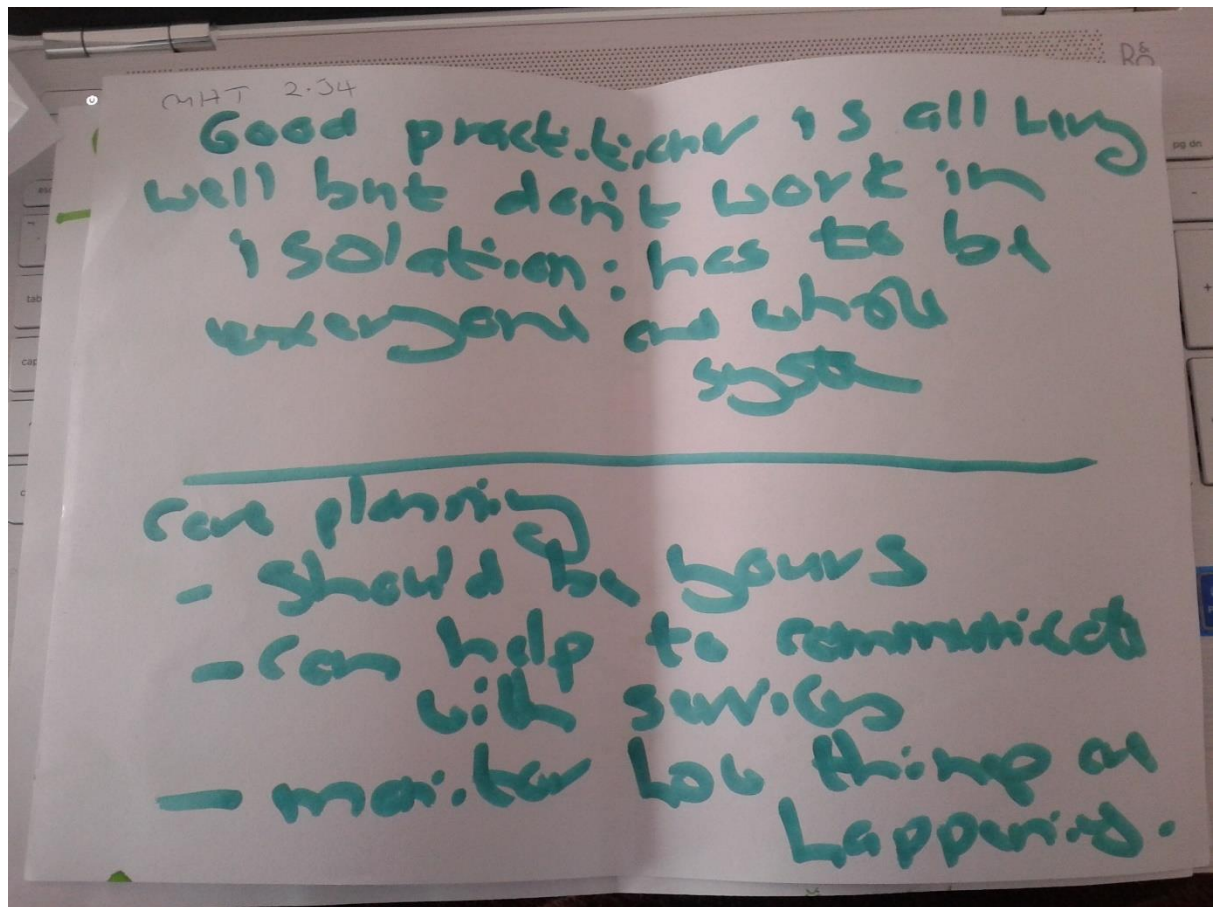 MHT 2.34
Good practitioner is all very
well but don't work in
isolation: has to be
everyone and whole
system
care planning
- should be yours
- can help to communicate
with services
- monitor how things are
happening.
B&O
pg dn
tab